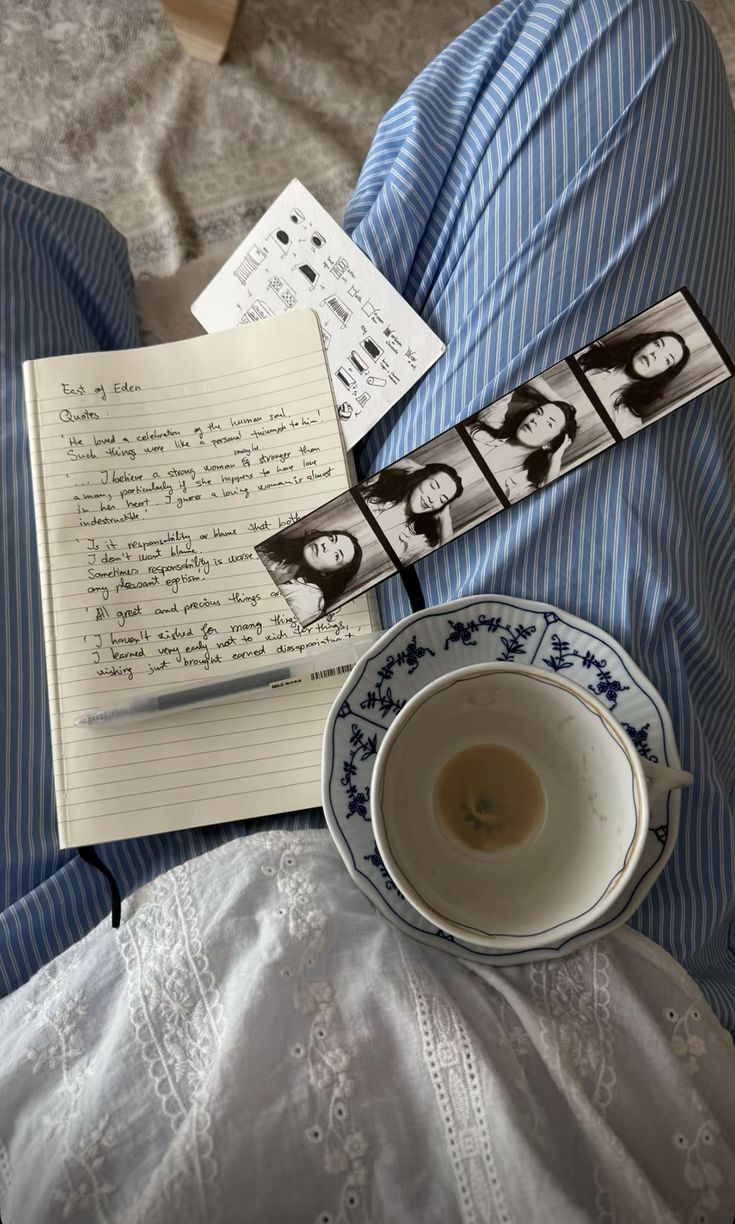 East of Eden
Quotes:
'He loved a celebration of the human soul.
Such things were like a personal triumph to him'
maybe
... I believe a strong woman is stronger than
a man, particularly if she happens to have love
in her heart. I guess a loving woman is almost
indestructible.'
'Is it responsibility or blame that both
I don't want blame.
Sometimes responsibility is worse
any pleasant egotism.'
'All great and precious things a
'I haven't wished for many things
I learned very early not to wish for things,
wishing just brought earned disappointment.
MUJI